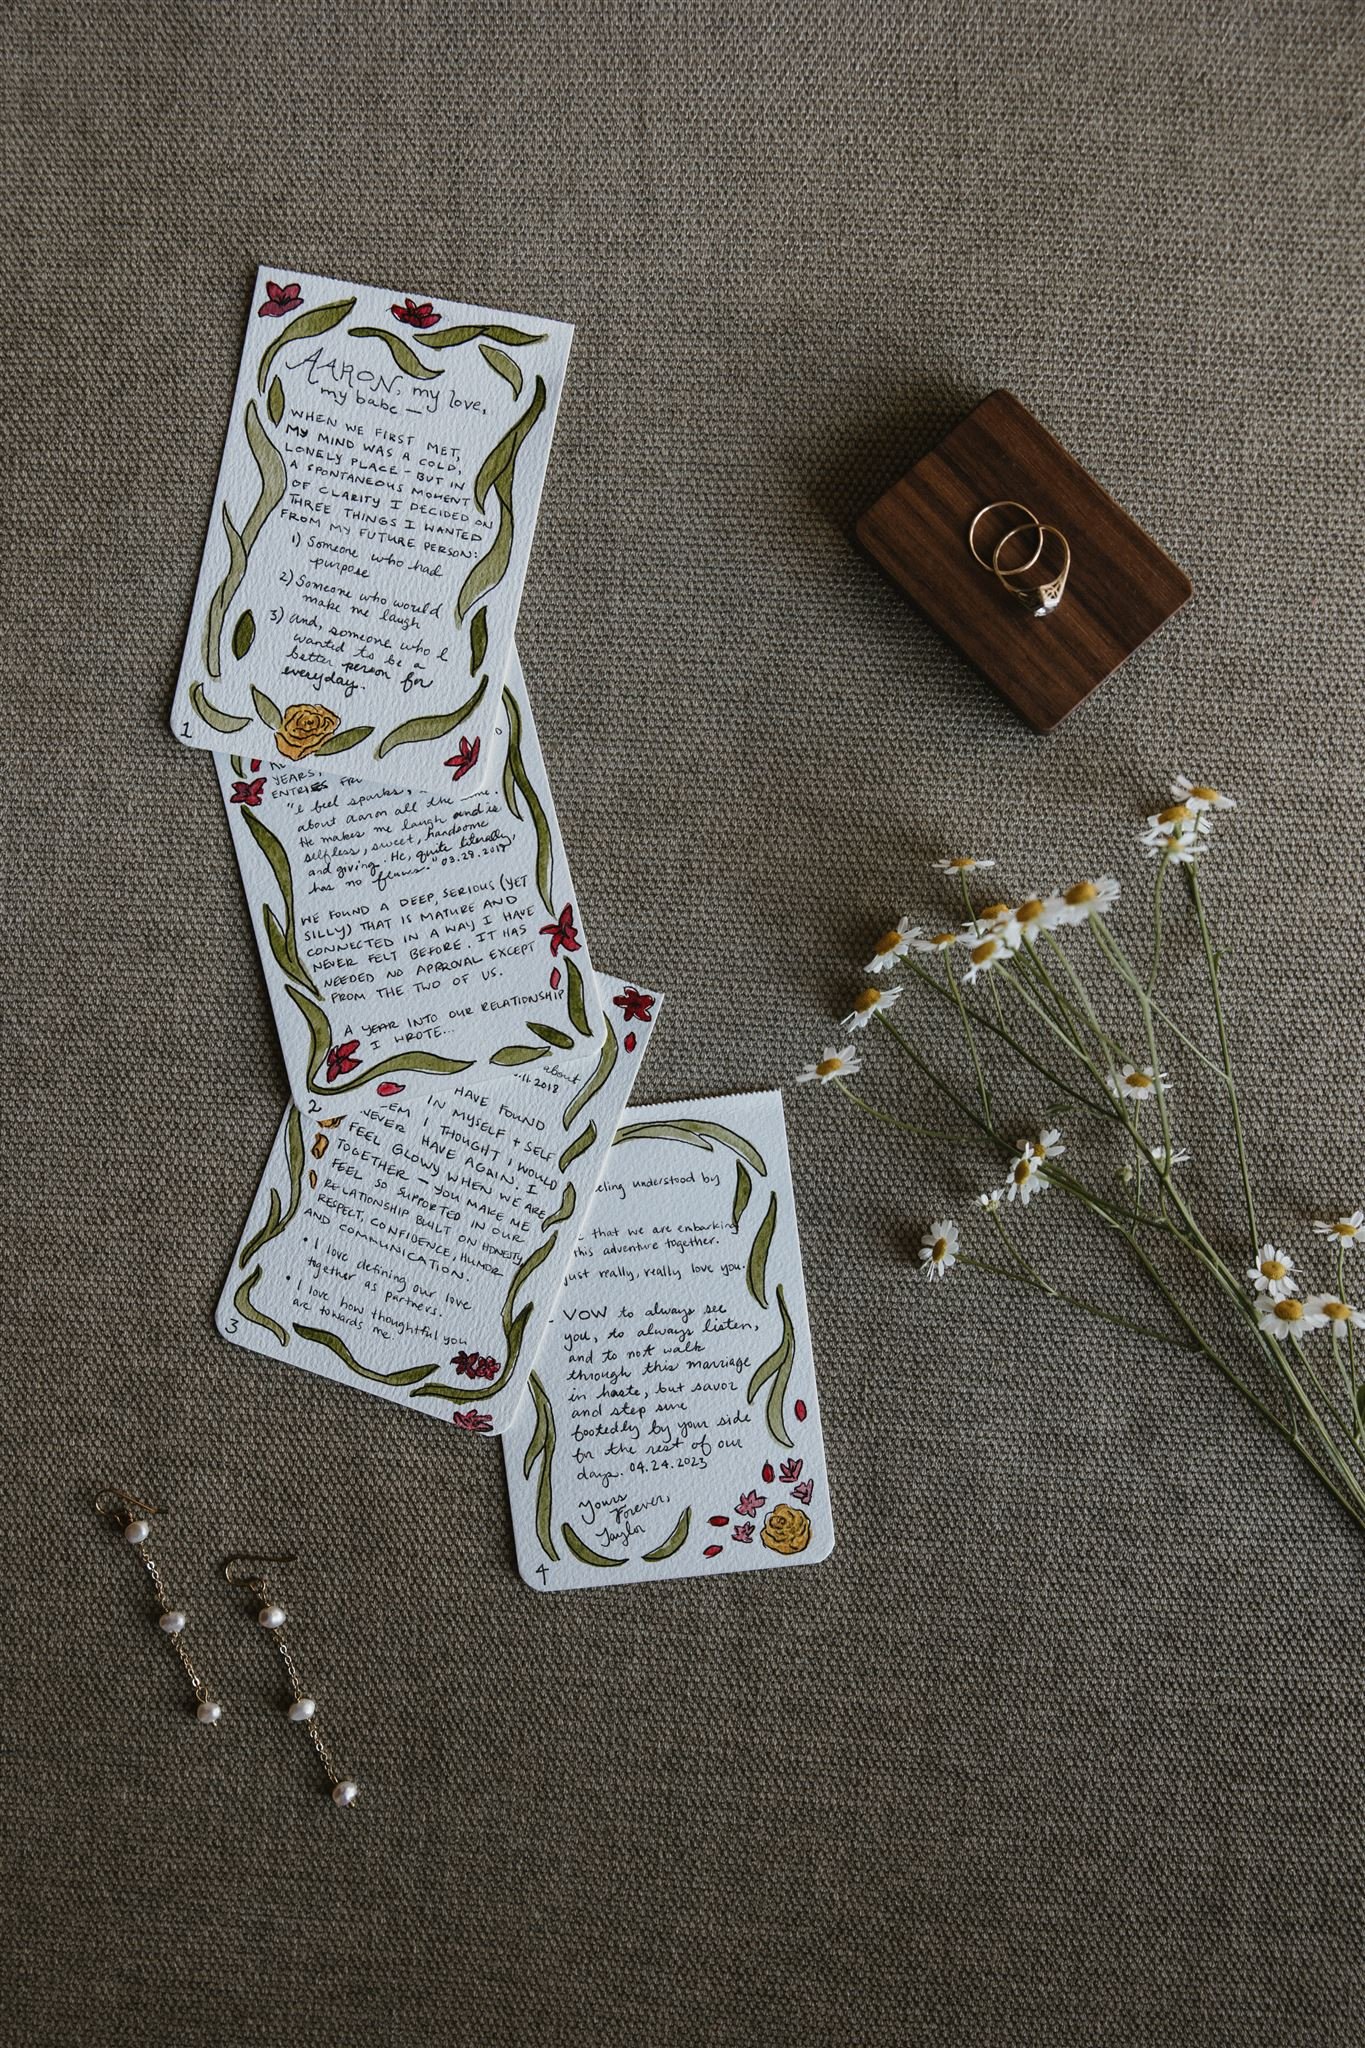 AARON, my love,
my babe —
WHEN WE FIRST MET,
MY MIND WAS A COLD,
LONELY PLACE - BUT IN
A SPONTANEOUS MOMENT
OF CLARITY I DECIDED ON
THREE THINGS I WANTED
FROM MY FUTURE PERSON:
1) Someone who had
purpose
2) Someone who would
make me laugh
3) and, someone who I
wanted to be a
better person for
everyday.
1
YEARS,
ENTRIES
"I feel sparks,
about aaron all the
He makes me laugh and is
selfless, sweet, handsome
and giving. He, quite literally,
has no flaws."
WE FOUND A DEEP, SERIOUS (YET
SILLY) THAT IS MATURE AND
CONNECTED IN A WAY I HAVE
NEVER FELT BEFORE. IT HAS
NEEDED NO APPROVAL EXCEPT
FROM THE TWO OF US.
A YEAR INTO OUR RELATIONSHIP
I WROTE...
2
about
.11.2018
HAVE FOUND
IN MYSELF + SELF
EM I THOUGHT I WOULD
NEVER HAVE AGAIN. I
FEEL GLOWY WHEN WE ARE
TOGETHER — YOU MAKE ME
FEEL SO SUPPORTED IN OUR
RELATIONSHIP BUILT ON HONESTY,
RESPECT, CONFIDENCE, HUMOR
AND COMMUNICATION.
• I love defining our love
together as partners.
• I love how thoughtful you
are towards me.
3
eling understood by
that we are embarking
this adventure together.
just really, really love you.
VOW to always see
you, to always listen,
and to not walk
through this marriage
in haste, but savor
and step sure
footedly by your side
for the rest of our
days. 04.24.2023
Yours
Forever,
Taylor
4